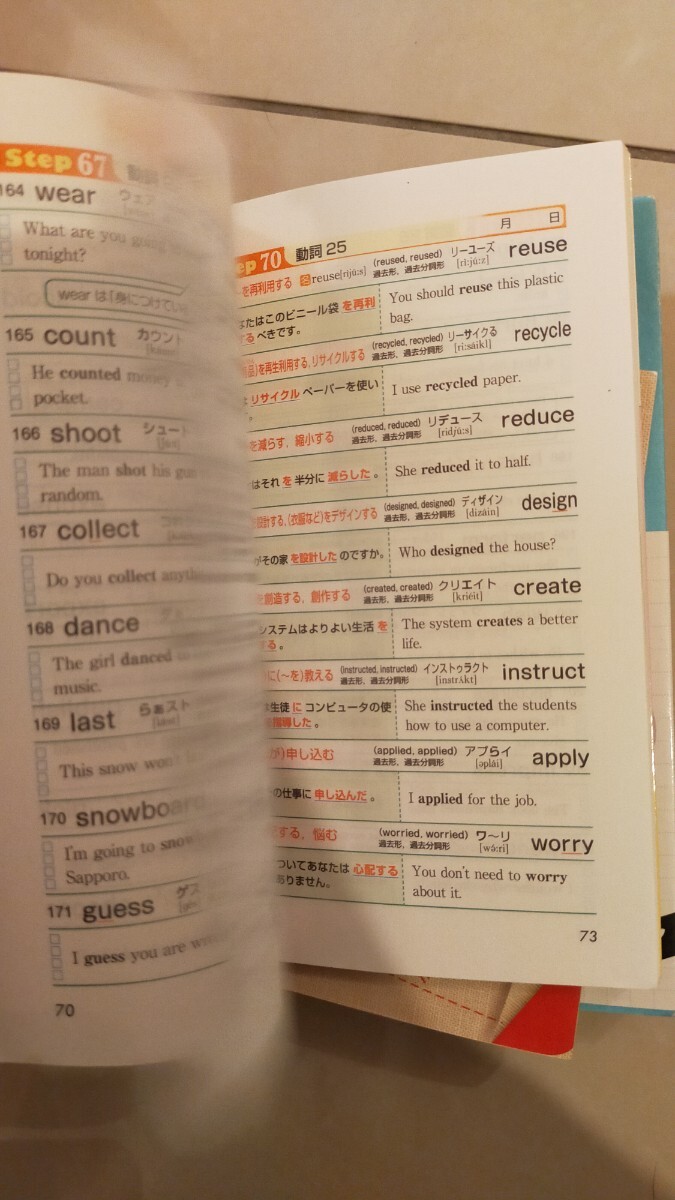 Step 67 動詞
164 wear ウェア
What are you going
tonight?
wear は「身につけてい
165 count カウント
He counted money
pocket.
166 shoot シュート
The man shot his gun
random.
167 collect
Do you collect anyth
168 dance
The girl danced
music.
169 last らぁスト
This snow won't
170 snowboard
I'm going to snow
Sapporo.
171 guess ゲス
I guess you are
70
月 日
ep 70 動詞 25
を再利用する 名reuse[rijúːs] (reused, reused) リーユーズ reuse
過去形、過去分詞形 [rìːjúːz]
なたはこのビニール袋 を再利
するべきです。
You should reuse this plastic
bag.
品)を再生利用する, リサイクルする (recycled, recycled) リーサイクる recycle
過去形、過去分詞形 [rìːsáikl]
リサイクル ペーパーを使い
す。
I use recycled paper.
を減らす, 縮小する (reduced, reduced) リデュース reduce
過去形、過去分詞形 [ridjúːs]
はそれ を 半分に 減らした 。
She reduced it to half.
設計する,(衣服など)をデザインする (designed, designed) ディザイン design
過去形、過去分詞形 [dizáin]
がその家 を設計した のですか。
Who designed the house?
を創造する, 創作する (created, created) クリエイト create
過去形、過去分詞形 [kriéit]
システムはよりよい生活 を
する 。
The system creates a better
life.
に(〜を)教える (instructed, instructed) インストゥラクト instruct
過去形、過去分詞形 [instrʌ́kt]
は生徒 に コンピュータの使
を指導した 。
She instructed the students
how to use a computer.
が)申し込む (applied, applied) アプらイ apply
過去形、過去分詞形 [əplái]
の仕事に 申し込んだ 。
I applied for the job.
する, 悩む (worried, worried) ワ〜リ worry
過去形、過去分詞形 [wə́ːri]
ついてあなたは 心配する
ありません。
You don't need to worry
about it.
73